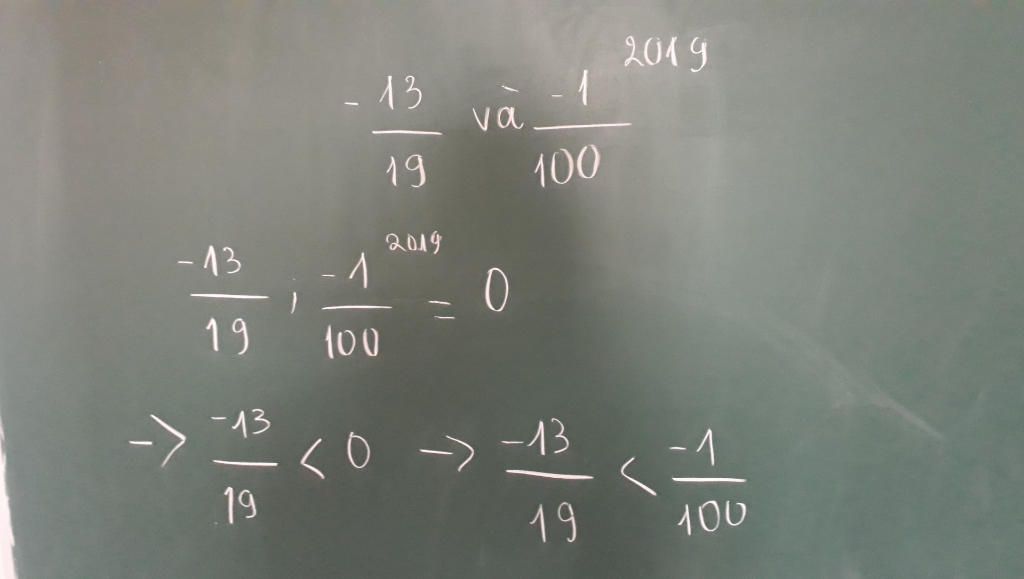 -13/19 và -1/100 ^2019
-13/19 ; -1/100 ^2019 = 0
-> -13/19 < 0 -> -13/19 < -1/100